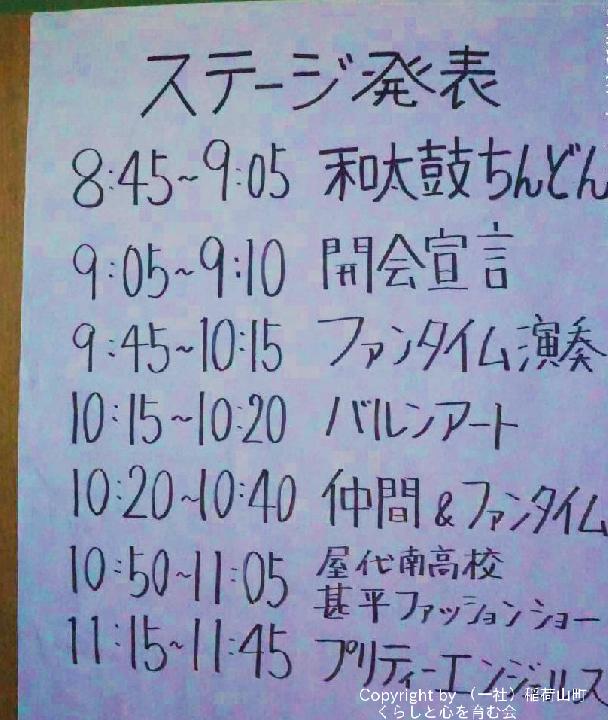 ステージ発表
8:45~9:05 和太鼓ちんどん
9:05~9:10 開会宣言
9:45~10:15 ファンタイム演奏
10:15~10:20 バルンアート
10:20~10:40 仲間&ファンタイム
10:50~11:05 屋代南高校
甚平ファッションショー
11:15~11:45 プリティーエンジェルス
Copyright by (一社)稲荷山町
くらしと心を育む会